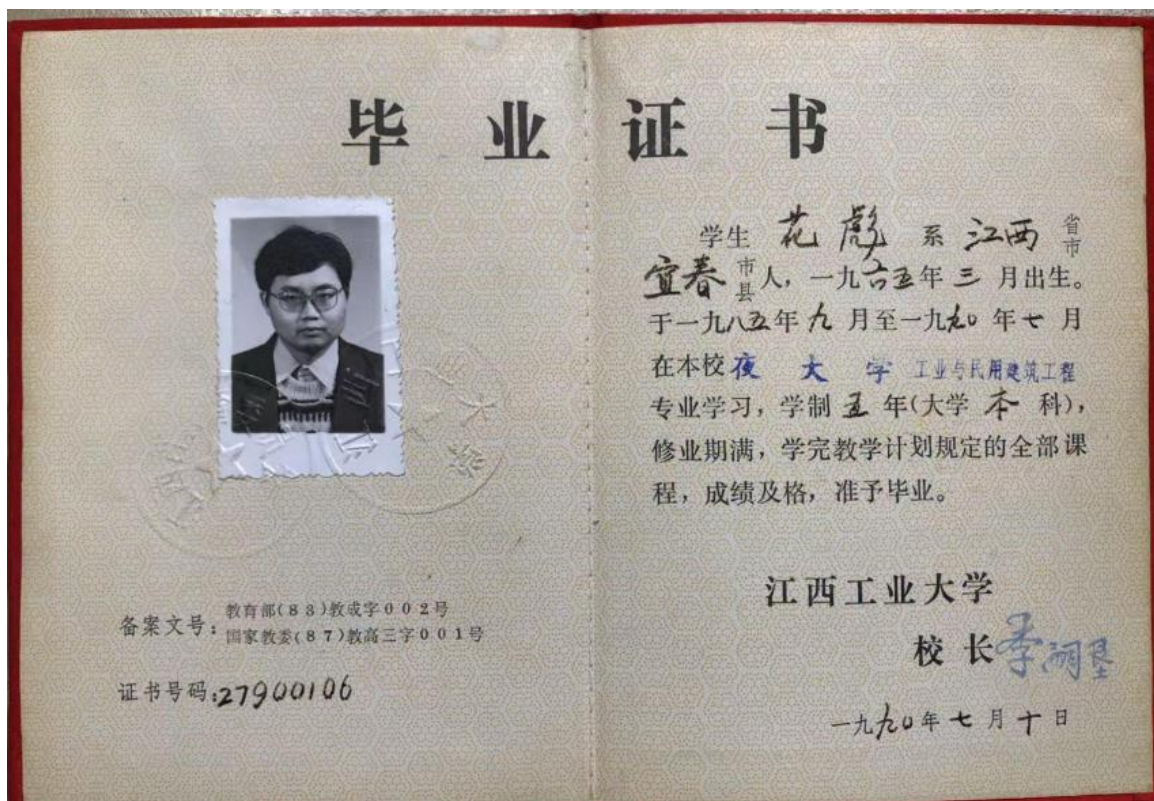 毕业证书
学生 花彪 系 江西 省市
宜春 市县 人，一九六五年三月出生。
于一九八五年九月至一九九0年七月
在本校夜大学 工业与民用建筑工程
专业学习，学制五年(大学本科)，
修业期满，学完教学计划规定的全部课
程，成绩及格，准予毕业。
江西工业大学
校长
一九九0年七月十日
备案文号：教育部(83)教成字002号
国家教委(87)教高三字001号
证书号码:27900106